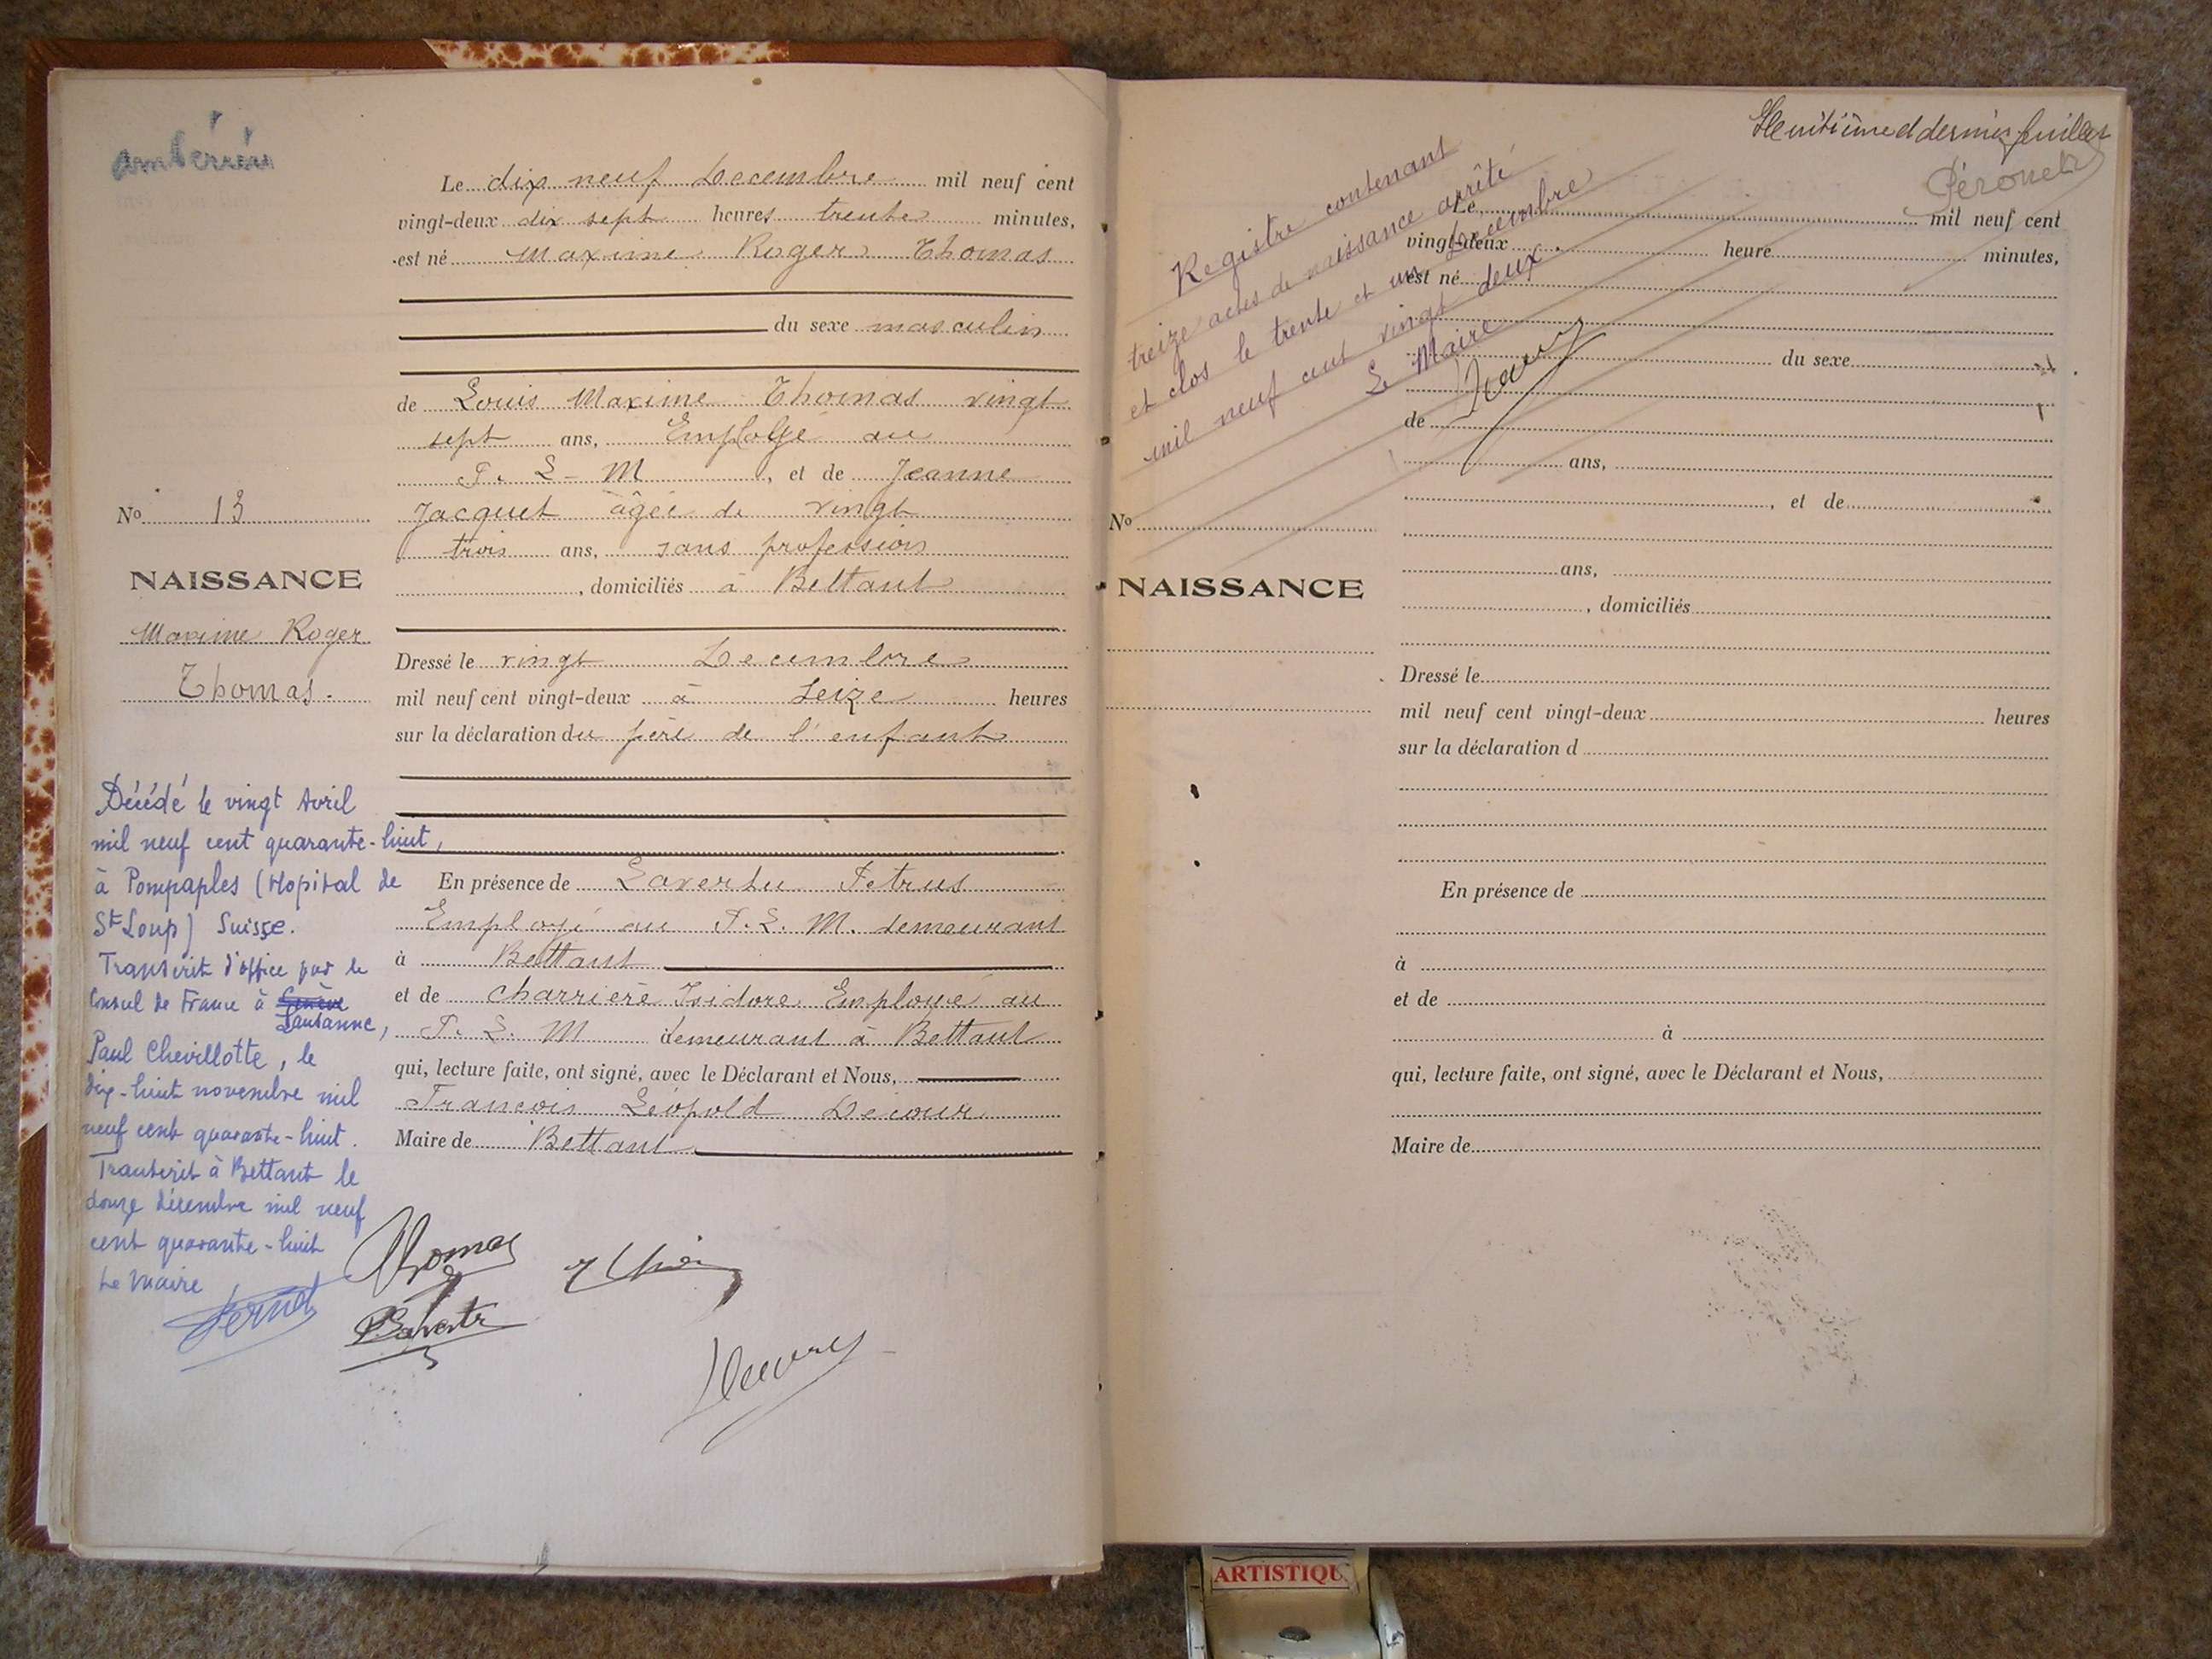 Ambérieu
Le dix neuf Decembre mil neuf cent
vingt-deux dix sept heures trente minutes,
est né Maxime Roger Thomas
du sexe masculin
de Louis Maxime Thomas vingt
sept ans, Employé au
P. L - M, et de Jeanne
Jacquet âgée de vingt
trois ans, sans profession
, domiciliés à Bettant
No 13
NAISSANCE
Maxime Roger
Thomas.
Dressé le vingt Decembre
mil neuf cent vingt-deux à seize heures
sur la déclaration du père de l'enfant
En présence de Laverhu Petrus
Employé au P. L. M. demeurant
à Bettant
et de Charrière Isidore Employé au
P. L. M demeurant à Bettant
qui, lecture faite, ont signé, avec le Déclarant et Nous,
Francois Léopold Decour
Maire de Bettant
Décédé le vingt Avril
mil neuf cent quarante-huit,
à Pompaples (Hopital de
St Loup) Suisse.
Transcrit d'office par le
Consul de France à Genève
Lausanne,
Paul Chevillotte, le
dix-huit novembre mil
neuf cent quarante-huit.
Transcrit à Bettant le
douze décembre mil neuf
cent quarante-huit
Le Maire
Thomas
Huitième et dernier feuillet
Péronet
Registre contenant
treize actes de naissance arrêté
et clos le trente et un Decembre
mil neuf cent vingt deux.
Le Maire
Le mil neuf cent
vingt-deux heure minutes,
est né
du sexe
de
ans,
, et de
No
ans,
NAISSANCE
, domiciliés
Dressé le
mil neuf cent vingt-deux heures
sur la déclaration d
En présence de
à
et de
à
qui, lecture faite, ont signé, avec le Déclarant et Nous,
Maire de
ARTISTIQU